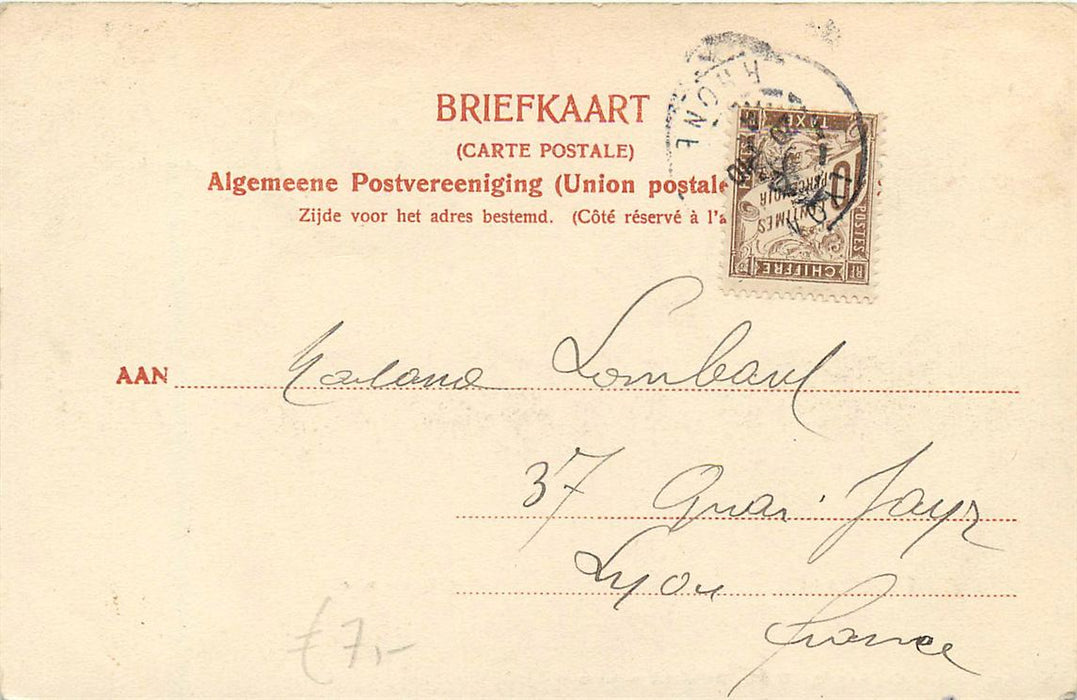 BRIEFKAART
(CARTE POSTALE)
Algemeene Postvereeniging (Union postale
Zijde voor het adres bestemd. (Côté réservé à l'a
RHONE
TAXE
10
CENTIMES
A PERCEVOIR
POSTES
RF
CHIFFRE
AAN Lombard
37 Quai Jayr
Lyon
France
€7,-